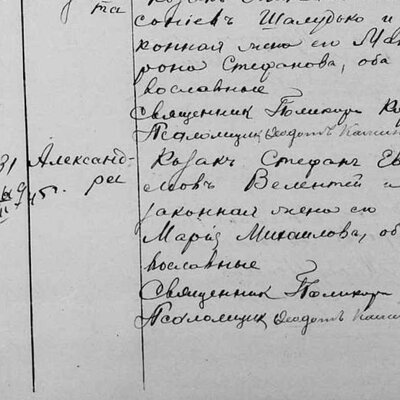 та
Козакъ
соніевъ Шалудько и
конная жена его Мат
рона Стефанова, оба
вославные
Священник Поликарп
Псаломщик Феодотъ
31 Александ- Козакъ Стефанъ Ев
ра
мовъ Велентей и
законная жена его
Марія Михаилова, об
вославные
Священник Поликарп
Псаломщик Феодотъ